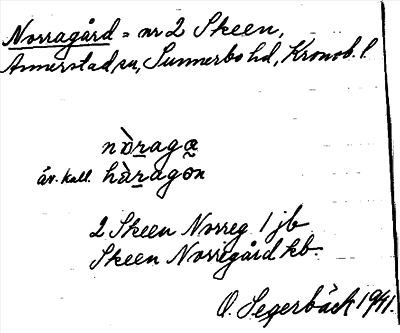 Norragård = nr 2 Skeen,
Annerstad sn, Sunnerbo hd, Kronob. l.
nò̱ragæ
äv. kall. hàragõn
2 Skeen Norreg 1 jb
Skeen Norregård kb.
O. Segerbäck 1941.